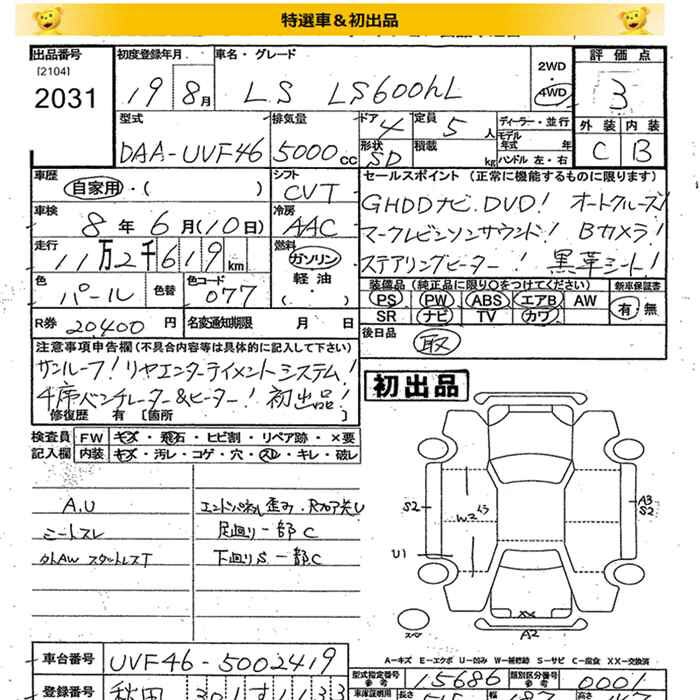 特選車＆初出品
出品番号 初度登録年月 車名・グレード 2WD 評価点
[2104] 19 8月 LS LS600hL 4WD 3
2031
型式 排気量 ドア 定員 ディーラー・並行 外装 内装
DAA-UVF46 5000cc 4 5人 モデル年式 年 C B
形状 SD 積載 kg ハンドル 左・右
車歴 シフト セールスポイント (正常に機能するものに限ります)
自家用・( ) CVT GHDDナビ.DVD! オートクルーズ!
車検 冷房 マークレビンソンサウンド! Bカメラ!
8年6月(10日) AAC ステアリングヒーター! 黒革シート!
走行 燃料
11万2千619km ガソリン
軽油
・( )
色 色替 色コード 装備品 (純正品に限り○をつけてください) 新車保証書
パール 077 PS PW ABS エアB AW 有・無
SR ナビ TV カワ
R券 20,400円 名変通知期限 月 日 後日品 取
注意事項申告欄 (不具合内容等は具体的に記入して下さい)
サンルーフ! リヤエンターテイメントシステム!
4席ベンチレーター&ヒーター! 初出品!
修復歴 有 [箇所 ]
初出品
検査員 FW キズ・飛石・ヒビ割・リペア跡・×要
記入欄 内装 キズ・汚レ・コゲ・穴・スレ・キレ・破レ
A.U エンドパネル歪み.
シートスレ 足廻り一部C
社外AW スタットレスT 下廻りS一部C
S2 W2 A3
S2
U1
XX
スペア A2
A-キズ E-エクボ U-凹み W-補修跡 S-サビ C-腐食 XX-交換済
車台番号 UVF46-5002419 型式指定番号 参考 15686 類別区分番号 参考 0001
登録番号 秋田 301 す1133 車庫証明用 参考 長さ 515 幅 187 高さ 147